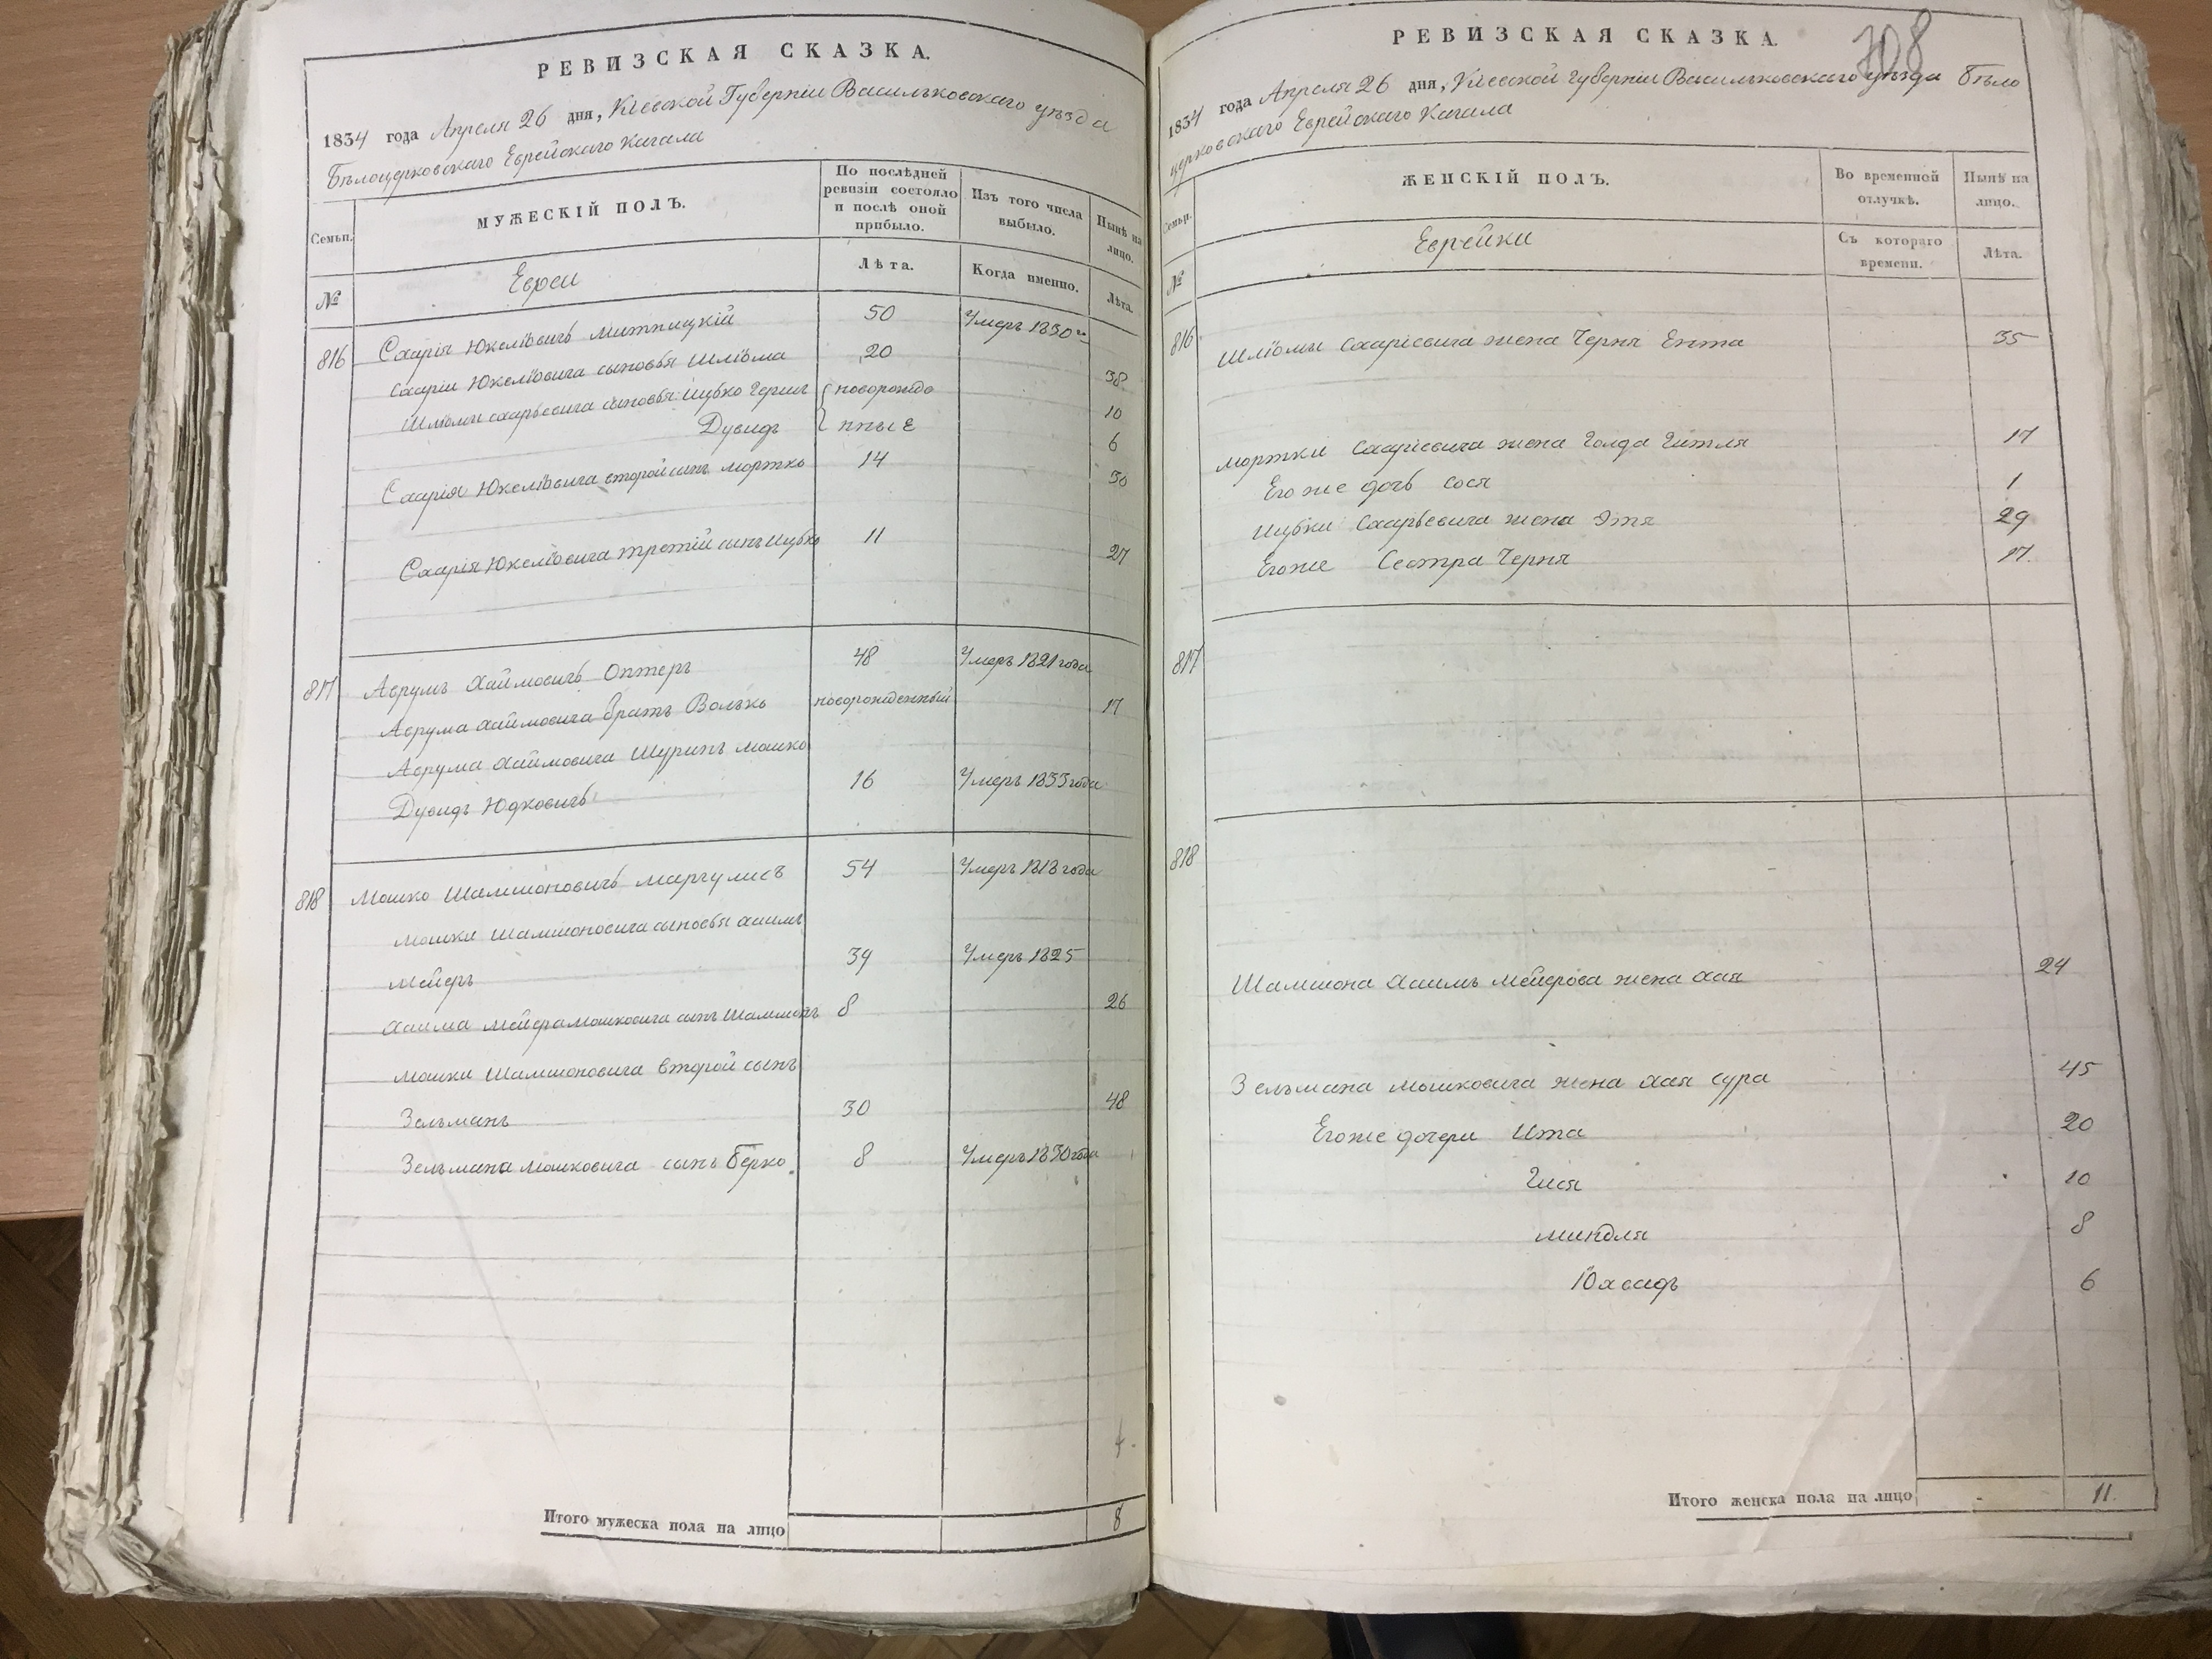 РЕВИЗСКАЯ СКАЗКА.
1834 года Апреля 26 дня, Кіевской Губерніи Васильковскаго уѣзда
Бѣлоцерковскаго Еврейскаго Кагала
Семьи.
МУЖЕСКІЙ ПОЛЪ.
По послѣдней ревизіи состояло и послѣ оной прибыло.
Изъ того числа выбыло.
Нынѣ на лицо.
№
Евреи
Лѣта.
Когда именно.
Лѣта.
816 Схарія Юкеліовичъ Митницкій 50 Умеръ 1830 го
Схаріи Юкеліовича сыновья Шліома 20 38
Шліомы схарьевича сыновья: Ицько Герш новорожде 10
Дувидъ нные 6
Схарія Юкеліовича второй сынъ мортко 14 30
Схарія Юкеліовича третій сынъ Ицько 11 27
817 Аврумъ Хаймовичъ Оптеръ 48 Умеръ 1821 года
Аврума Хаймовича братъ Волько новорожденный 17
Аврума Хаймовича Шуринъ мошко
Дувидъ Юдковичъ 16 Умеръ 1833 года
818 Мошко Шамшоновичъ маргулисъ 54 Умеръ 1818 года
мошки Шамшоновича сыновья хаимъ
мейеръ 39 Умеръ 1825
хаима мейера мошковича сынъ Шамшонъ 8 26
мошки Шамшоновича второй сынъ
Зельманъ 30 48
Зельмана мошковича сынъ Берко. 8 Умеръ 1830 года
4
Итого мужеска пола на лицо 8
708
РЕВИЗСКАЯ СКАЗКА.
1834 года Апреля 26 дня, Кіевской губерніи Васильковскаго уѣзда Бѣло
церковскаго Еврейскаго Кагала
Семьи.
ЖЕНСКІЙ ПОЛЪ.
Во временной отлучкѣ.
Нынѣ на лицо.
№
Еврейки
Съ котораго времени.
Лѣта.
816 Шліомы Схаріевича жена Черня Ента 35
мортки Схаріевича жена Голда Гитля 17
Его же дочь сося 1
Ицьки Схарьевича жена Этя 29
Его же Сестра Черня 17.
817
818
Шамшона Хаимъ мейерова жена хая 24
Зельмана мошковича жена хая сура 45
Его же дочери Ита 20
Гися 10
миндля 8
Юхвидъ 6
Итого женска пола на лицо - 11.